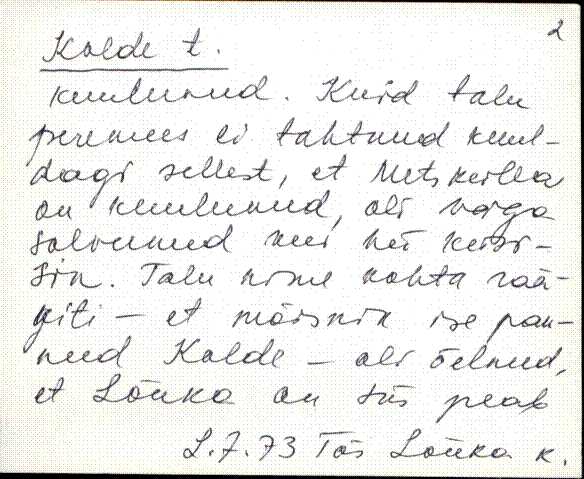 2
Kalde t.
kuulunud. Kuid talu
peremees ei tahtnud kuul-
dagi sellest, et Metskülla
on kuulunud, oli väga
solvunud kui nii küsi-
sin. Talu nime kohta rää-
giti – et mõisnik ise pan-
nud Kalde – oli öelnud,
et Lõuka on siis peab
L.7.73 Tõs Lõuka k.